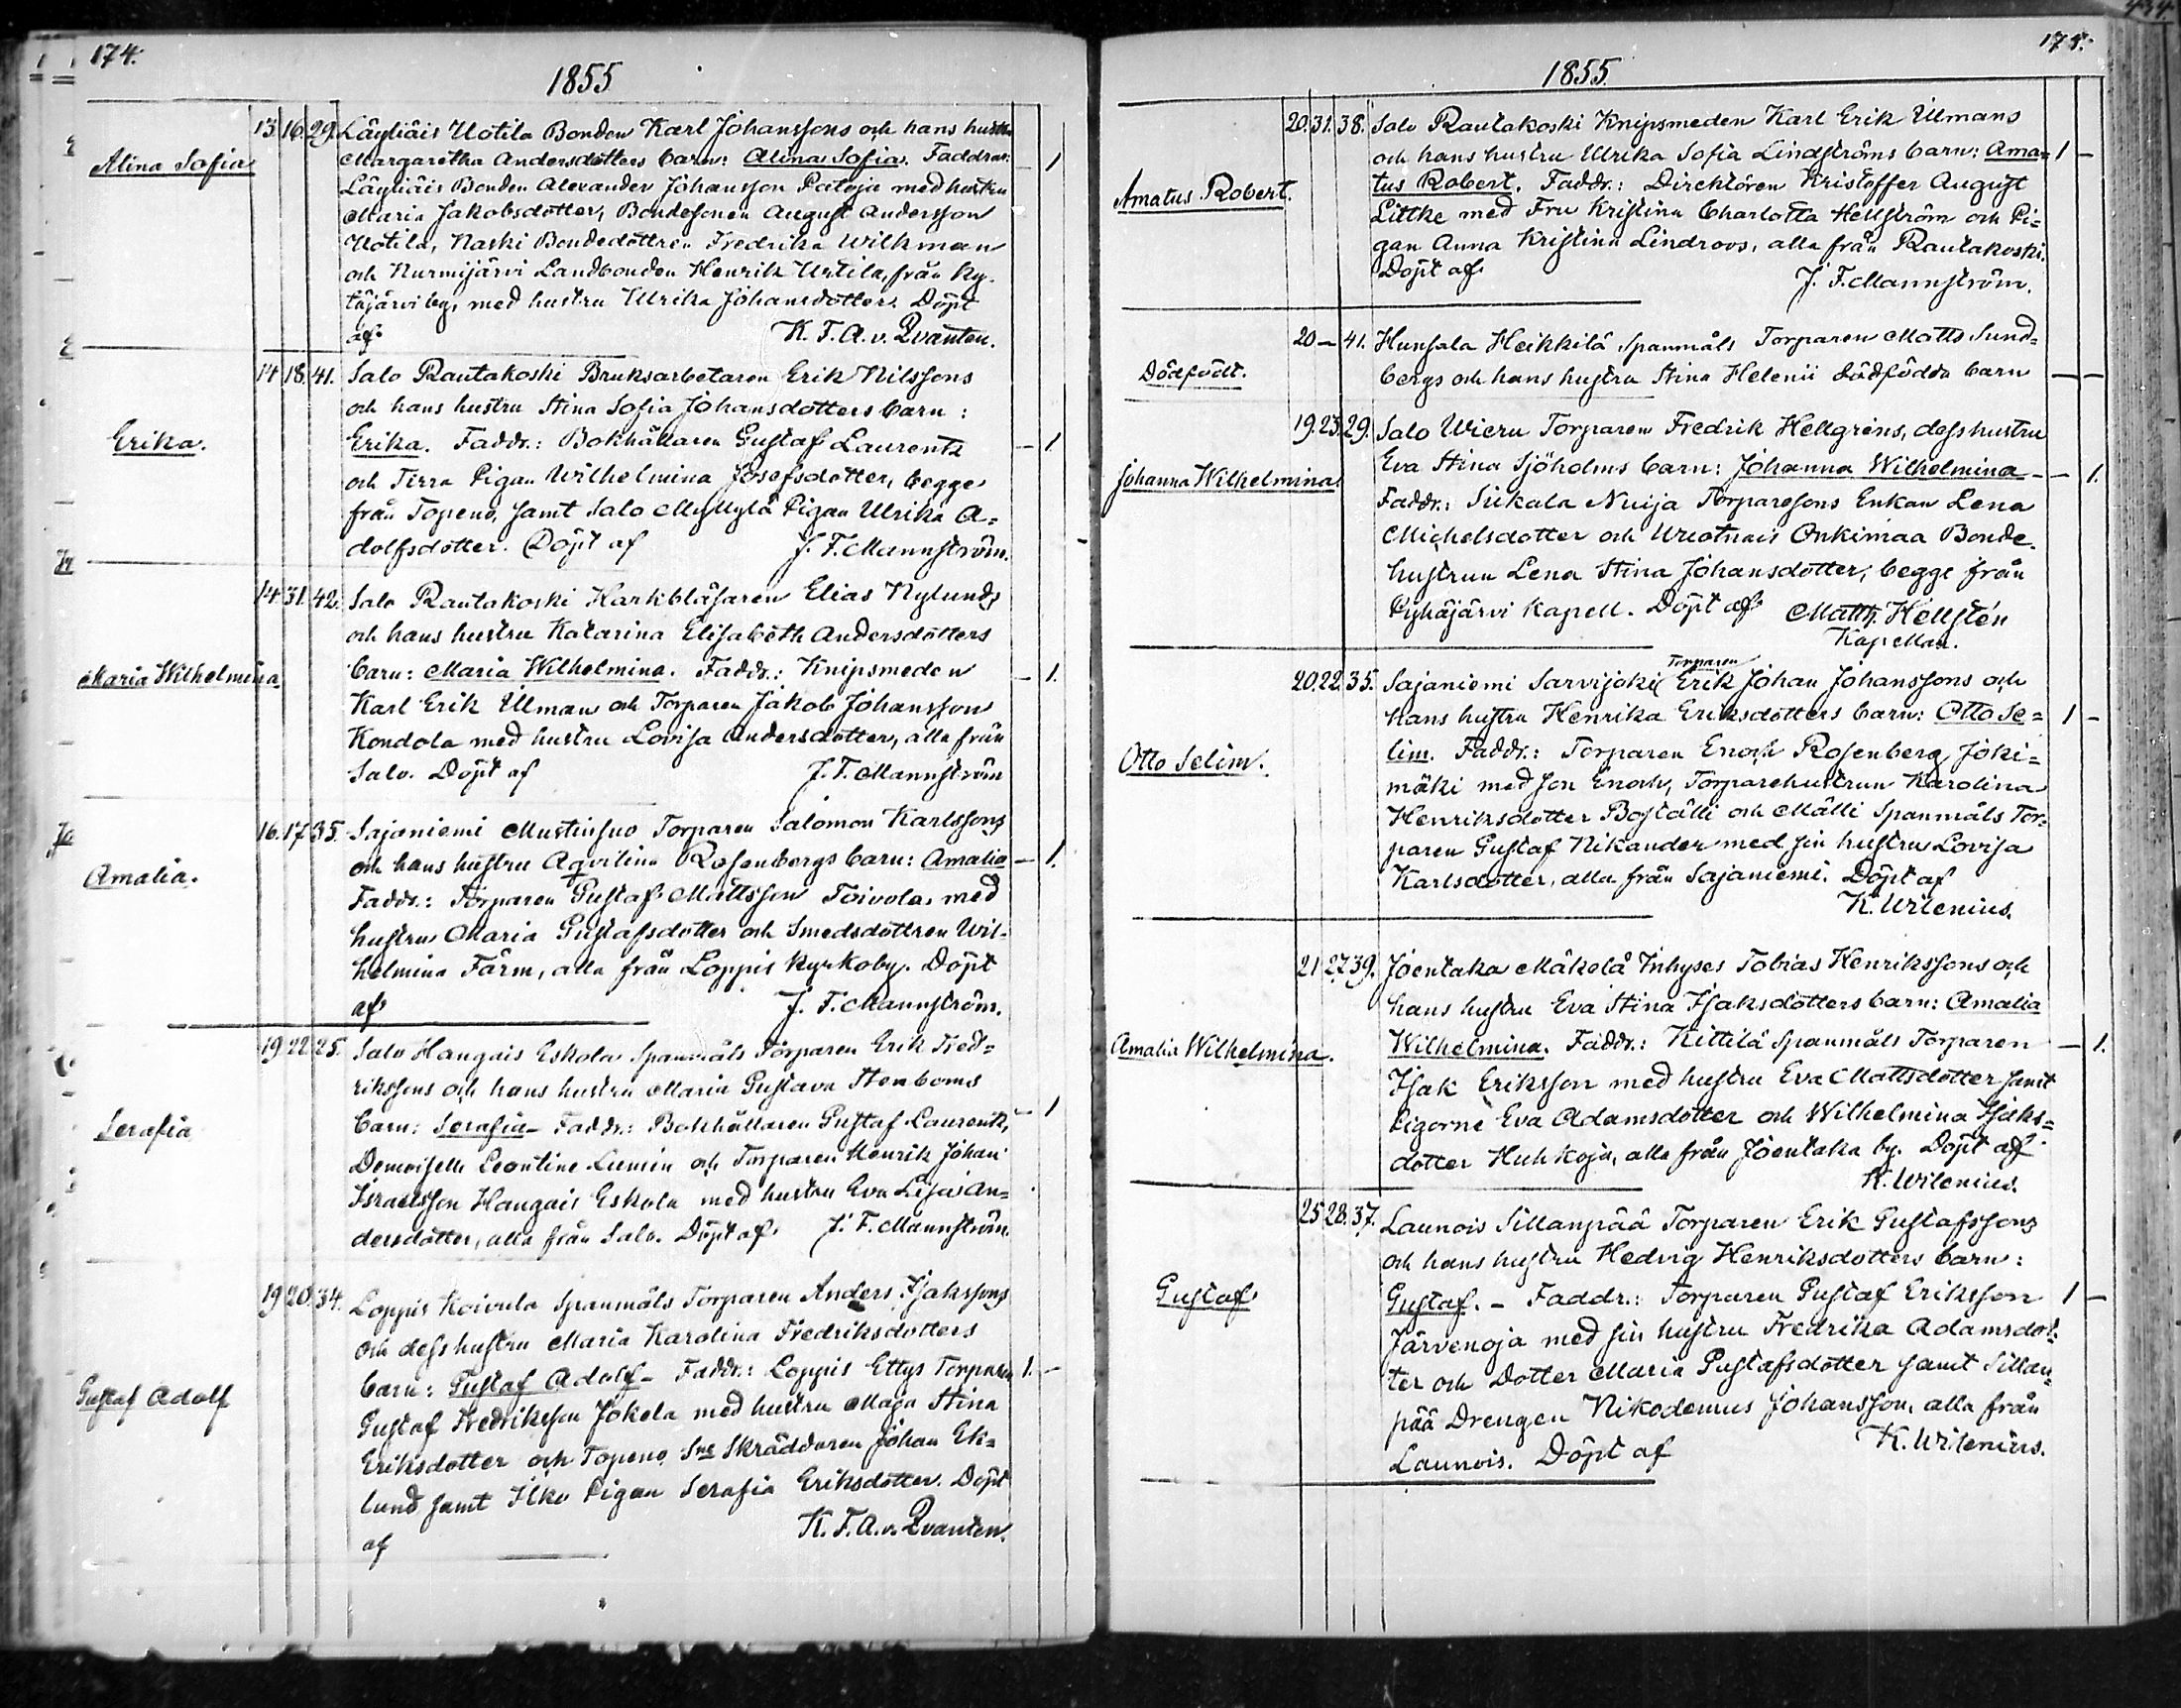 174.
1855
Alina Sofia
13. 16. 29. Läyliäis Uotila Bonden Karl Johanssons och hans hustru
Margaretha Andersdotters barn: Alina Sofia. Faddrar: — 1
Läyliäis Bonden Alexander Johansson Patoja med hustru
Maria Jakobsdotter, Bondesonen August Andersson
Uotila, Naski Bondedottren Fredrika Wilkman
och Nurmijärvi Landbonden Henrik Uotila, från Ky-
täjärvi by, med hustru Ulrika Johansdotter. Döpt
af K. F. A. v. Qvanten.
Erika.
14. 18. 41. Salo Rautakoski Bruksarbetaren Erik Nilssons
och hans hustru Stina Sofia Johansdotters barn:
Erika. Faddr.: Bokhållaren Gustaf Laurentz — 1.
och Pigan Wilhelmina Josefsdotter, begge
från Topeno, samt Salo Myllylä Pigan Ulrika A=
dolfsdotter. Döpt af J. F. Mannström.
Maria Wilhelmina
14. 31. 42. Salo Rautakoski Harkblåsaren Elias Nylunds
och hans hustru Katarina Elisabeth Andersdotters
barn: Maria Wilhelmina. Faddr.: Knipsmeden — 1.
Karl Erik Ullman och Torparen Jakob Johansson
Kondola med hustru Lovisa Andersdotter, alla från
Salo. Döpt af J. F. Mannström
Amalia.
16. 17. 35. Sajaniemi Mustinsuo Torparen Salomon Karlssons
och hans hustru Aqvilina Rosenbergs barn: Amalia — 1.
Faddr.: Torparen Gustaf Mattsson Toivola, med
hustru Maria Gustafsdotter och Smedsdottren Wil-
helmina Färm, alla från Loppis Kyrkoby. Döpt
af J. F. Mannström.
Serafia
19. 22. 25. Salo Hangais Eskola Spanmåls Torparen Erik Fred=
rikssons och hans hustru Maria Gustava Stenboms
barn: Serafia — Faddr.: Bokhållaren Gustaf Laurentz, — 1
Demoiselle Leontine och Torparen Henrik Johan
Israelsson Hangais Eskola med hustru Eva Lisa An=
dersdotter, alla från Salo. Döpt af J. F. Mannström.
Gustaf Adolf
19. 20. 34. Loppis Koivula Spanmåls Torparen Anders Isakssons
och dess hustru Maria Karolina Fredriksdotters
barn: Gustaf Adolf — Faddr.: Loppis Ettys Torparen 1. —
Gustaf Fredriksson Jokela med hustru Maja Stina
Eriksdotter och Topeno Skräddaren Johan Ek=
lund samt Ilko Pigan Serafia Eriksdotter. Döpt
af K. F. A. v. Qvanten.
175.
1855.
Amatus Robert.
20. 31. 38. Salo Rautakoski Knipsmeden Karl Erik Ullmans
och hans hustru Ulrika Sofia Lindströms barn: Ama= 1 —
tus Robert. Faddr.: Direktören Kristoffer August
Littke med Fru Kristina Charlotta Hellström och Pi=
gan Anna Kristina Lindroos, alla från Rautakoski.
Döpt af J. F. Mannström.
Dödfödt.
20 — 41. Hunsala Heikkilä Spanmåls Torparen Matts Sund=
bergs och hans hustru Stina Helenii dödfödda barn — —
Johanna Wilhelmina
19. 23. 29. Salo Wieru Torparen Fredrik Hellgrens, dess hustru
Eva Stina Sjöholms barn: Johanna Wilhelmina — — 1.
Faddr.: Nuija Torparesons Enkan Lena
Michelsdotter och Onkimaa Bonde-
hustrun Lena Stina Johansdotter, begge från
Pyhäjärvi Kapell. Döpt af Matth. Hellstén
Kapellan.
Otto Selim.
Torparen
20. 22. 35. Sajaniemi Sarvijoki Erik Johan Johanssons och
hans hustru Henrika Eriksdotters barn: Otto Se= 1 —
lim. Faddr.: Torparen Enoch Rosenberg Joki=
mäki med son Enoch, Torparehustrun Karolina
Henriksdotter Boställi och Mälli Spanmåls Tor=
paren Gustaf Nikander med sin hustru Lovisa
Karlsdotter, alla från Sajaniemi. Döpt af
K. Wilenius.
Amalia Wilhelmina.
21. 27. 39. Joentaka Mäkelä Inhyses Tobias Henrikssons och
hans hustru Eva Stina Isaksdotters barn: Amalia
Wilhelmina. Faddr.: Kittilä Spanmåls Torparen — 1.
Isak Eriksson med hustru Eva Mattsdotter samt
Pigorne Eva Adamsdotter och Wilhelmina Isaks=
dotter Huhkoja, alla från Joentaka by. Döpt af
K. Wilenius.
Gustaf
25. 28. 37. Launois Sillanpää Torparen Erik Gustafssons
och hans hustru Hedvig Henriksdotters barn:
Gustaf. — Faddr.: Torparen Gustaf Eriksson 1 —
Järvenoja med sin hustru Fredrika Adamsdot-
ter och Dotter Maria Gustafsdotter samt Sillan=
pää Drengen Nikodemus Johansson, alla från
Launois. Döpt af K. Wilenius.